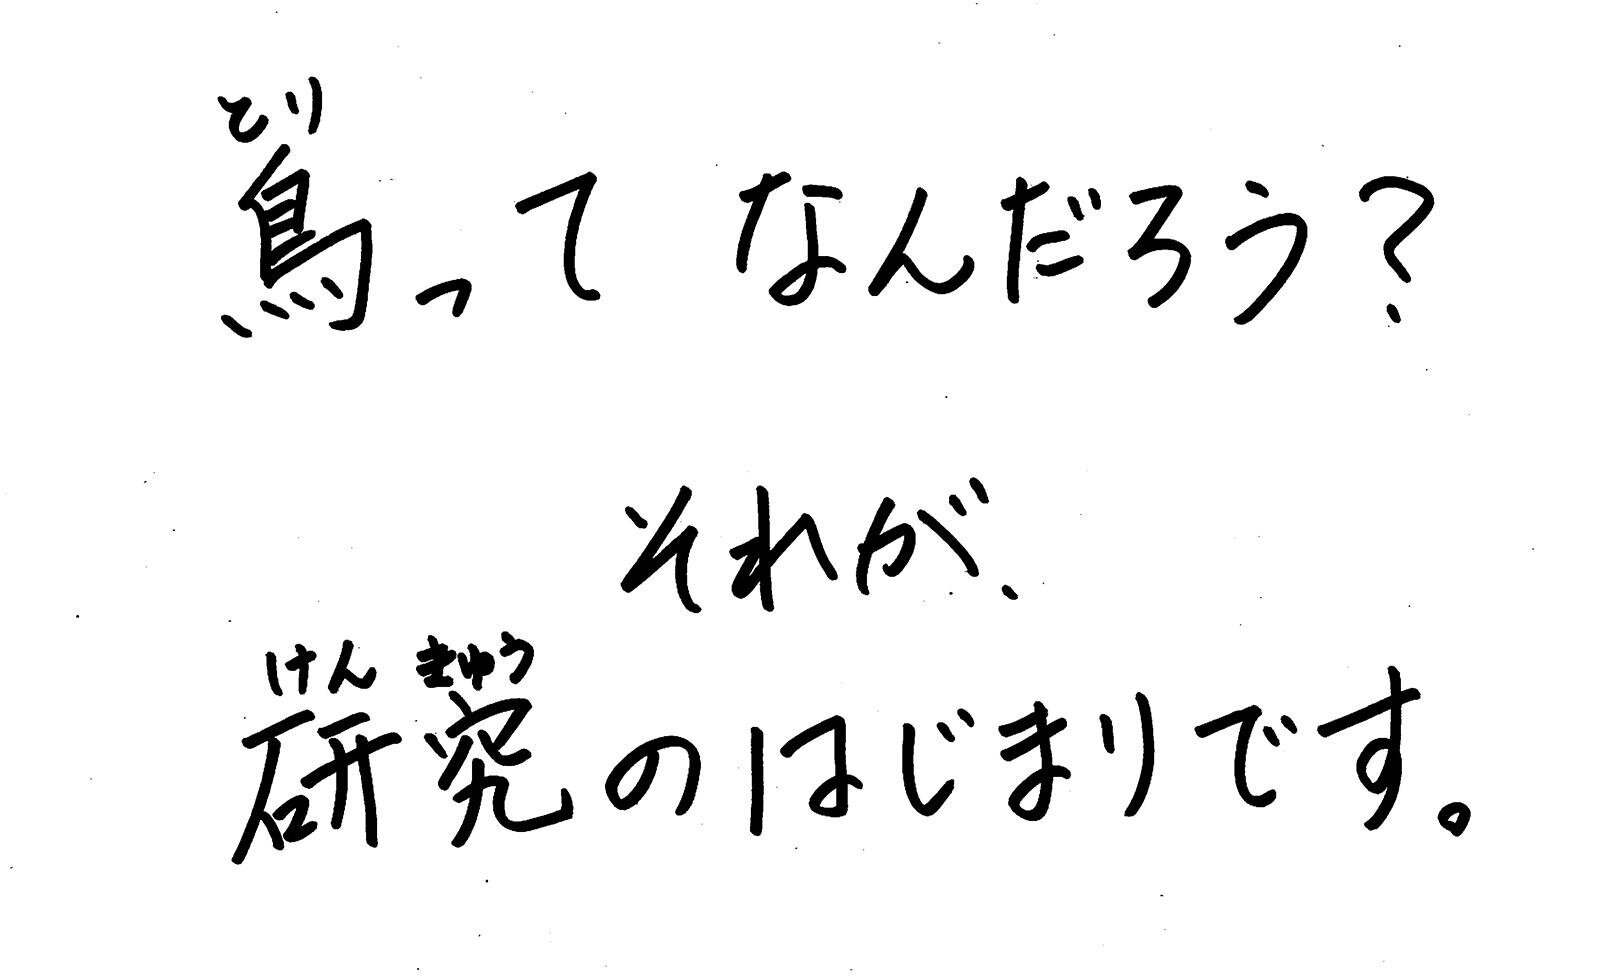 とり
鳥って なんだろう?
それが、
けん きゅう
研究のはじまりです。